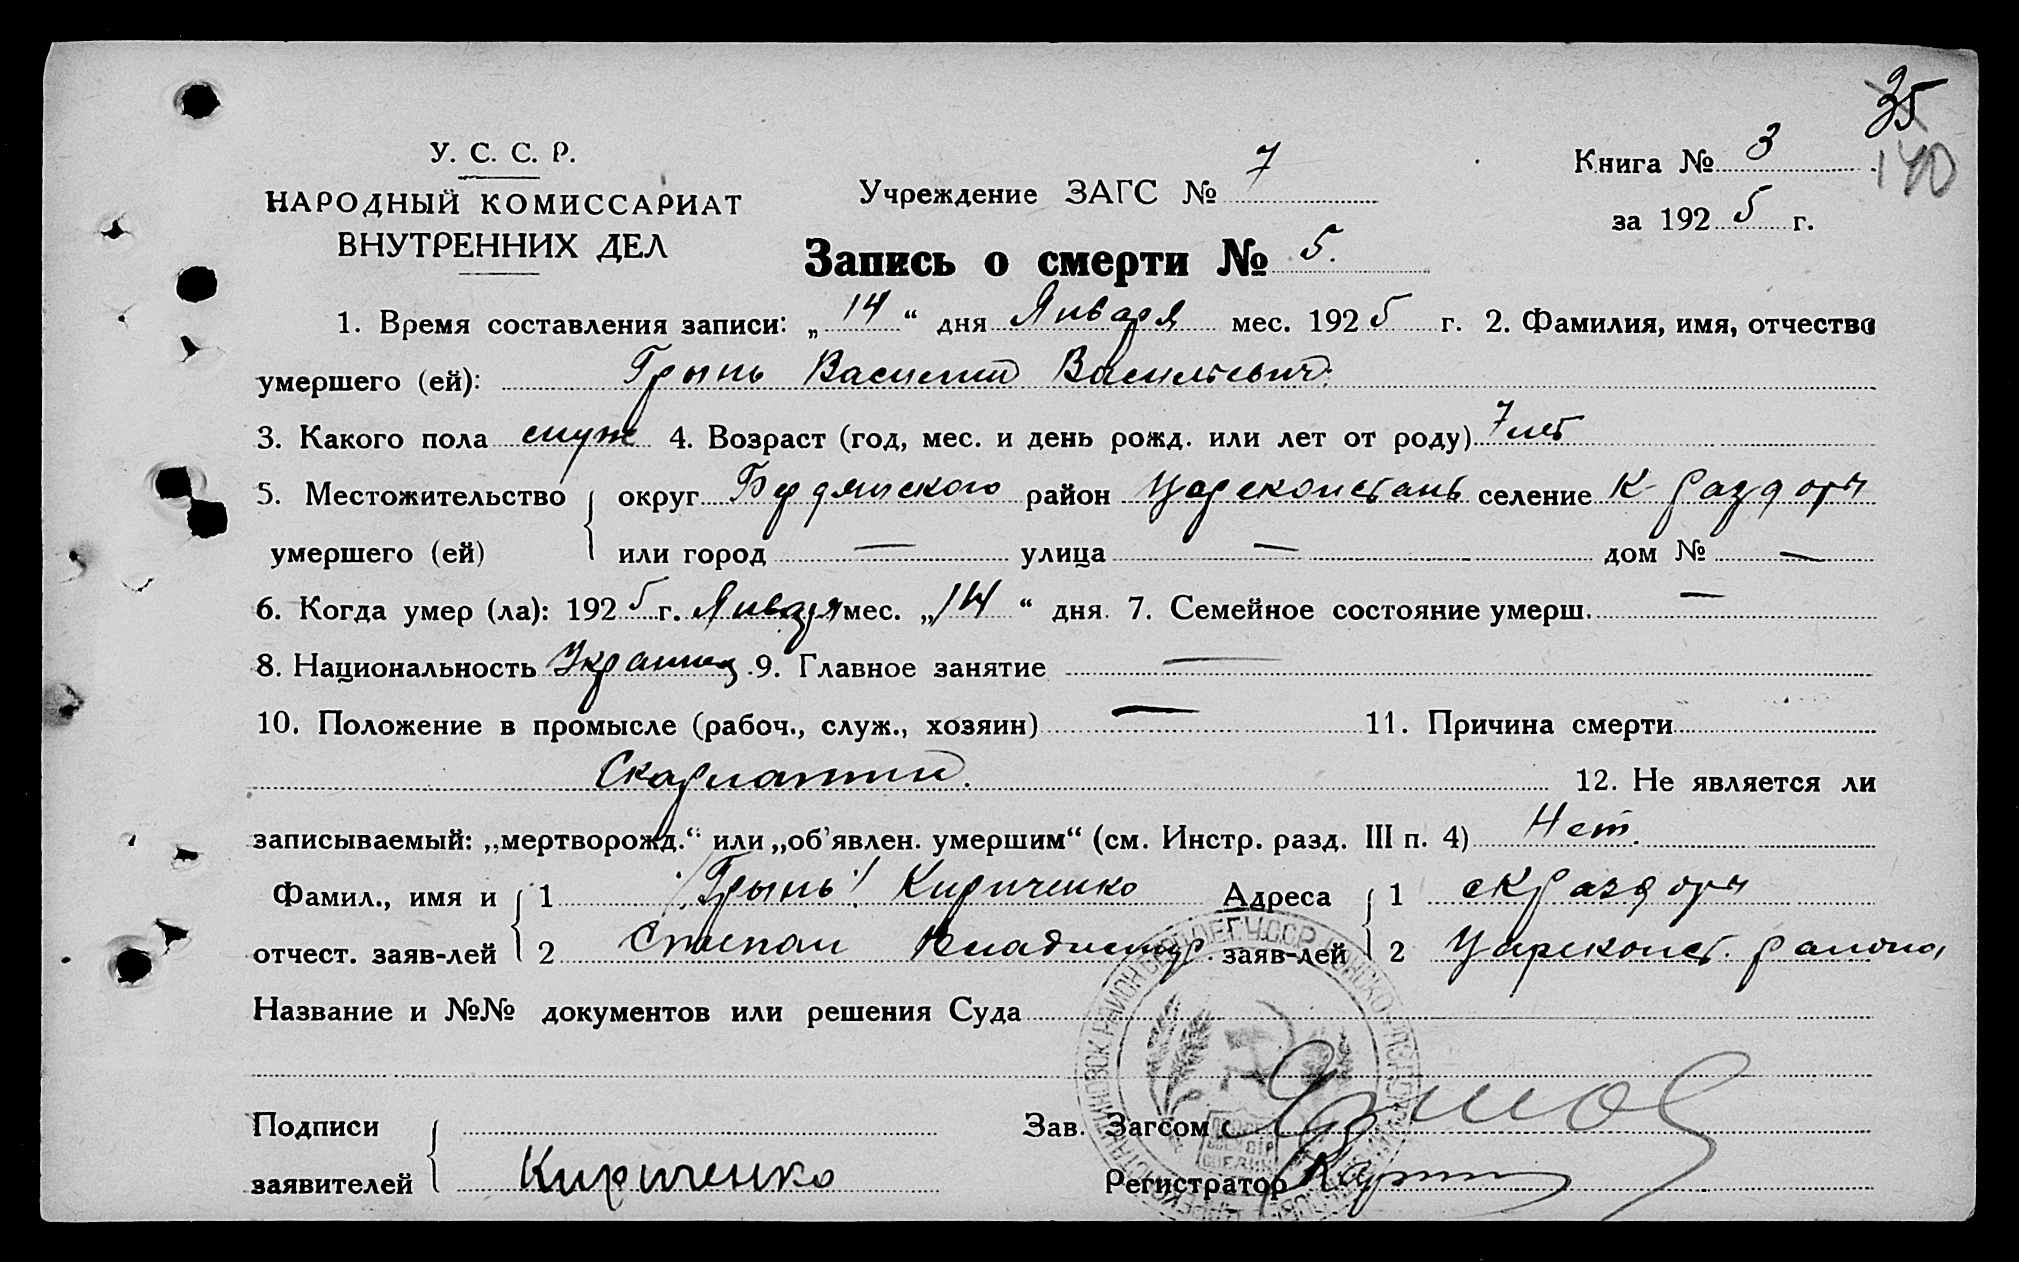 35
140
У. С. С. Р.
НАРОДНЫЙ КОМИССАРИАТ
ВНУТРЕННИХ ДЕЛ
Учреждение ЗАГС № 7
Книга № 3
за 1925 г.
Запись о смерти № 5.
1. Время составления записи: „14“ дня Января мес. 1925 г. 2. Фамилия, имя, отчество
умершего (ей): Грынь Василий Васильевич.
3. Какого пола муж 4. Возраст (год, мес. и день рожд. или лет от роду) 7 лет
5. Местожительство округ Бердянского район Цареконстант селение К-Раздоры
умершего (ей) или город — улица — дом № —
6. Когда умер (ла): 1925 г. Января мес. „14“ дня. 7. Семейное состояние умерш. —
8. Национальность Украинец 9. Главное занятие —
10. Положение в промысле (рабоч., служ., хозяин) — 11. Причина смерти
Скарлатин. 12. Не является ли
записываемый: „мертворожд.“ или „об'явлен. умершим“ (см. Инстр. разд. III п. 4) Нет.
Фамил., имя и 1 /Грынь/ Кириченко Адреса 1 с К Раздоры
отчест. заяв-лей 2 Степан Владимир. заяв-лей 2 Цареконст. района
Название и №№ документов или решения Суда
Подписи Зав. Загсом
заявителей Кириченко Регистратор